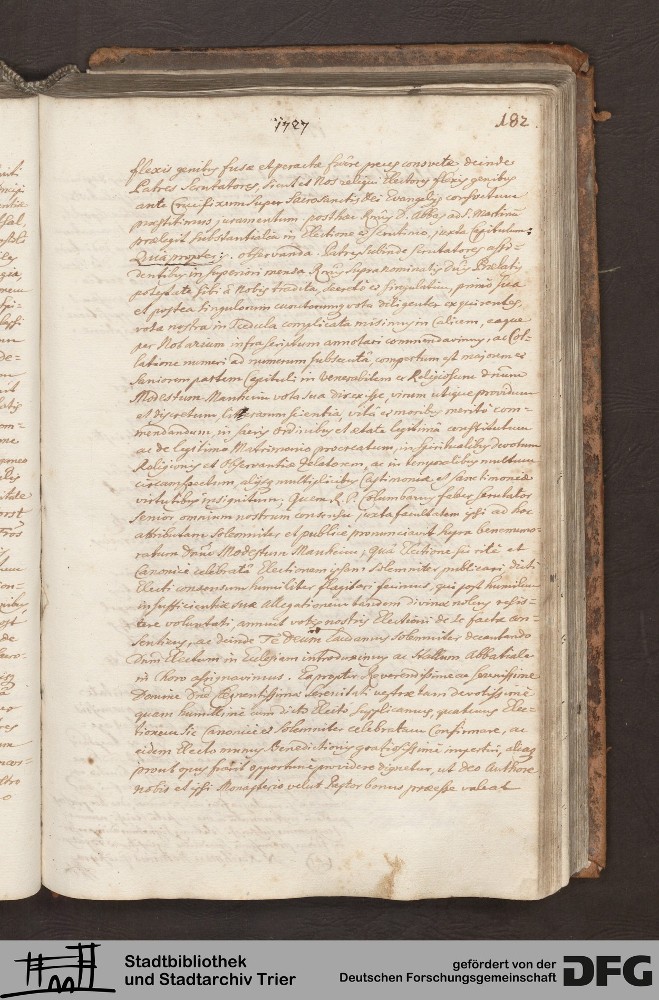 1727
182
flexis genibus fusae et peractae fuere preces consuetae deinde
Patres Scrutatores, sicut et Nos reliqui Electores flexis genibus
ante Crucifixum super Sacrosanctis Dei Evangelijs consuetum
praestitimus juramentum, posthac D. Abbas ad S. Martinum
praelegit Substantialia in Electione et Scrutinio, juxta Capitulum:
Quia propter: observanda. Patres subinde Scrutatores assi-
dentibus in superiori mensa supranominatis Praelatis
potestate sibi a Nobis tradita, secreto et singulatim, primo sua
et postea singulorum vota diligenter exquirentes,
vota nostra in Scedula complicata misimus in Calicem, eaque
per Notarium infrascriptum annotari commendavimus, ac Col-
latione numeri ad numerum subsecuta compertum est majorem et
saniorem partem Capituli in Venerabilem et Religiosum
Modestum Manheim vota sua direxisse, virum utique providum
et discretum, scientia, vita et moribus merito com-
mendandum, in sacris ordinibus et aetate legitima constitutum
ac de legitimo Matrimonio procreatum, in spiritualibus devotum
Religionis et Observantiae Zelatorem, ac in temporalibus multum
circumspectum, alijsque multiplicibus Castimoniae et sanctimoniae
virtutibus insignitum, Quem R. P. Columbanus faber Scrutator
Senior, omnium nostrum consensu juxta facultatem ipsi ad hoc
attributam solemniter et publice pronunciavit supra benememo-
ratum Modestum Manheim, qua Electione sic rite et
Canonice celebrata Electionem ipsam solemniter publicari dicti
Electi consensum humiliter flagitari fecimus, qui post humilem
insufficientiae suae allegationem tandem divinae nolens resis-
tere voluntati, annuit votis nostris Electioni de se factae con-
sentiens, ac deinde Te Deum laudamus solemniter decantando
Electum in Ecclesiam introduximus ac Stallum Abbatiale
in Choro assignavimus. Eapropter Reverendissime ac Serenissime
Domine Serenitati vestrae tam devotissime
quam humillime cum dicto Electo supplicamus, quatenus Elec-
tionem sic Canonice et Solemniter celebratam Confirmare, ac
eidem Electo munus Benedictionis gratiosissime impertiri, aliaque
prout opus fuerit opportune providere dignetur, ut Deo Authore
nobis et ipsi Monasterio velut Pastor bonus praeesse valeat
Stadtbibliothek
und Stadtarchiv Trier
gefördert von der
Deutschen Forschungsgemeinschaft
DFG